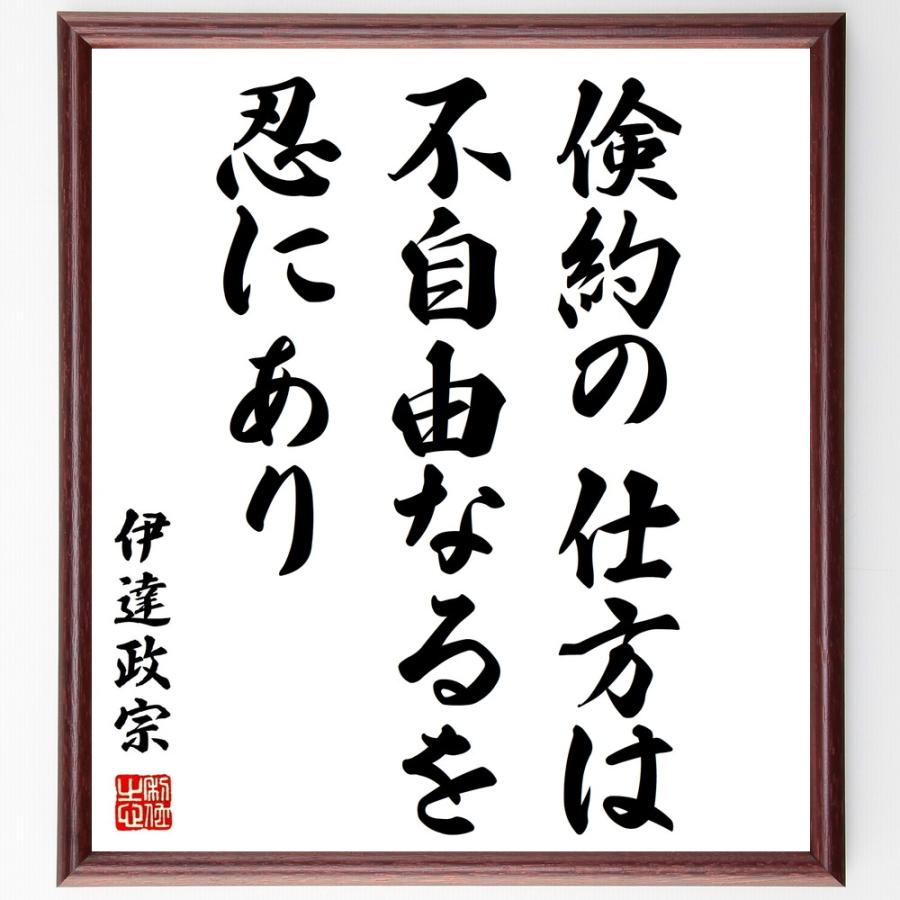 倹約の仕方は
不自由なるを
忍にあり
伊達政宗